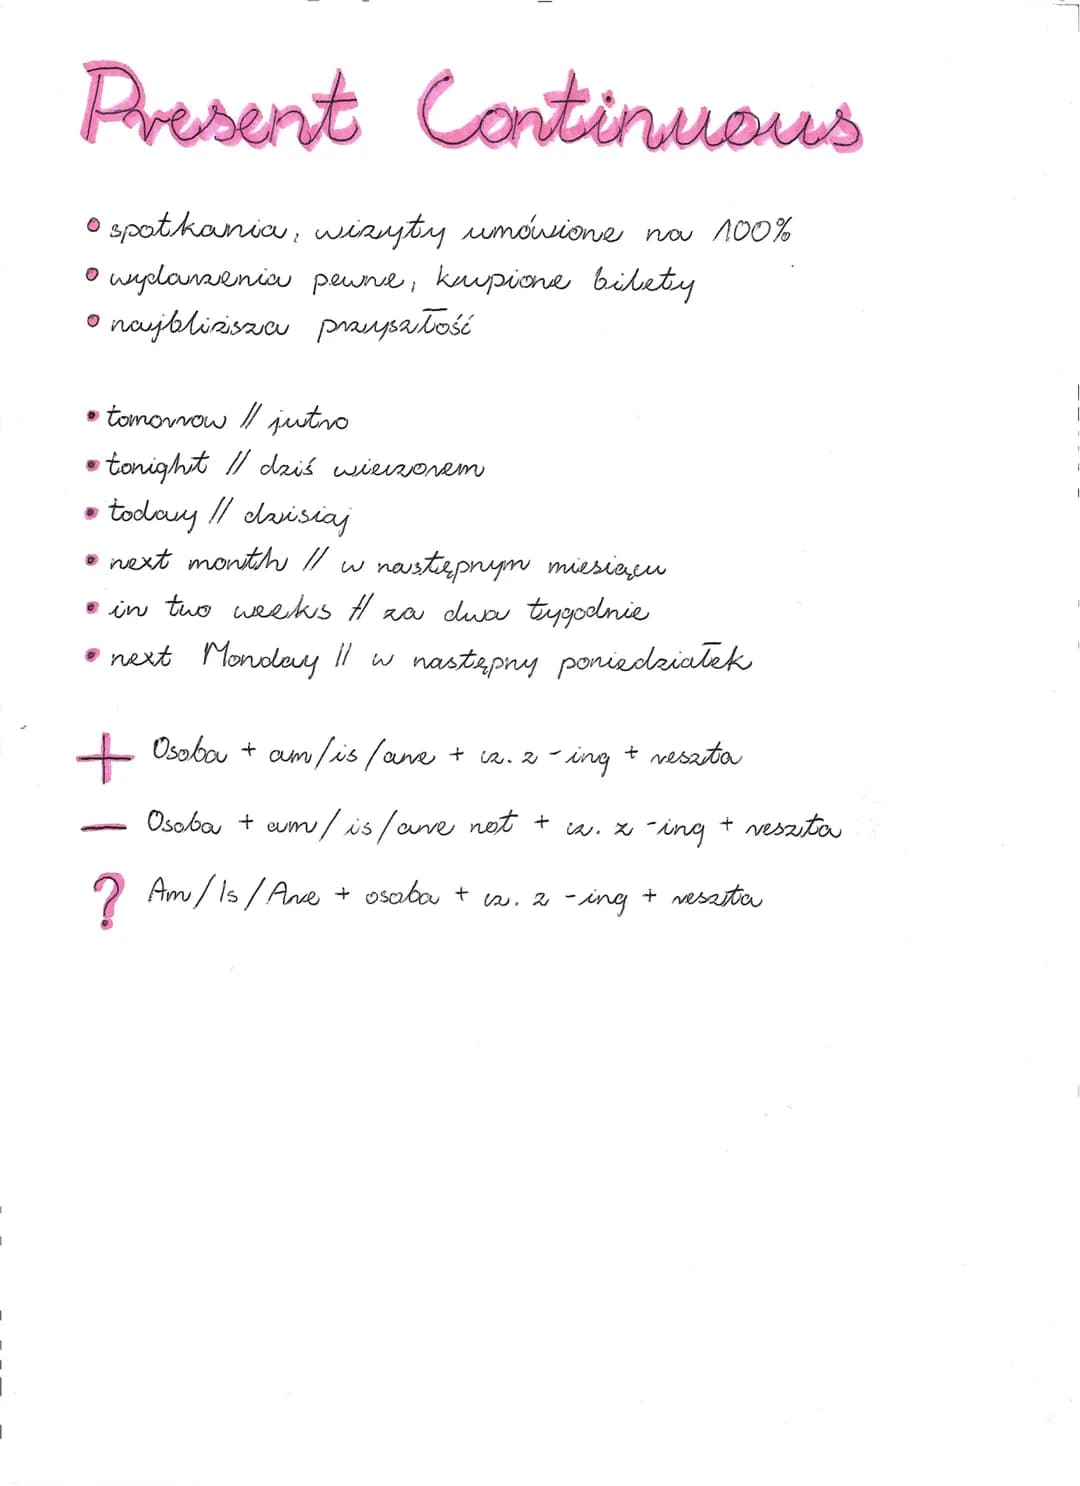 Present Continuous
• spotkania, wizyty umówione na 100%
• wydarzenia pewne, kupione bilety
• najbliższa przyszłość
• tomorrow // jutro
• tonight // dziś wieczorem
• today // dzisiaj
• next month // w następnym miesiącu
• in two weeks // za dwa tygodnie
• next Monday // w następny poniedziałek
+ Osoba + am/is/are + cz. z -ing + reszta
− Osoba + am/is/are not + cz. z -ing + reszta
? Am/Is/Are + osoba + cz. z -ing + reszta